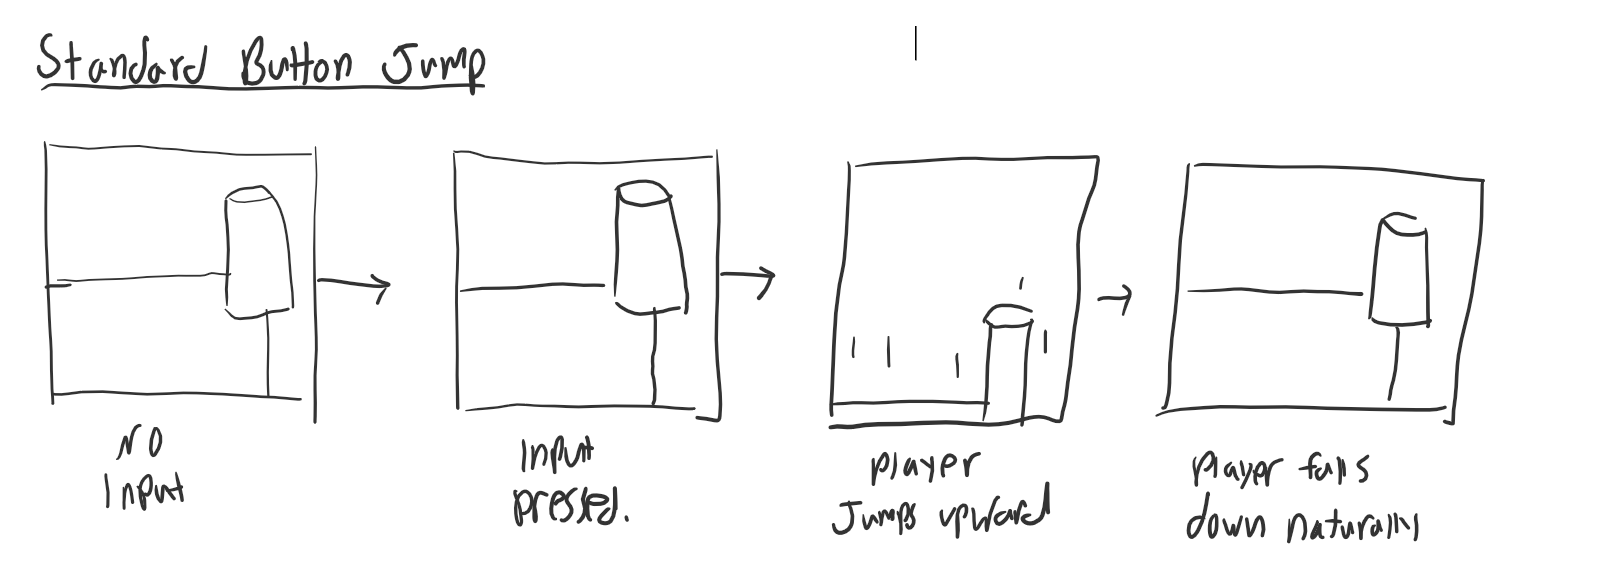 Standard Button Jump
NO
Input
Input
pressed.
player
Jumps upward
player falls
down naturally